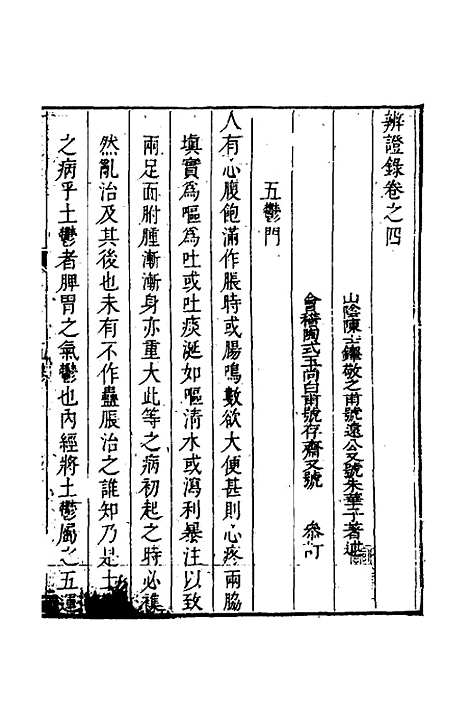 辨證錄卷之四
山陰陳士鐸敬之甫號遠公又號朱華子著述
會稽陶式玉尚白甫號存齋又號 參訂
五鬱門
人有心腹飽滿作脹時或腸鳴數欲大便甚則心疼兩脇
填實爲嘔爲吐或吐痰涎如嘔清水或瀉利暴注以致
兩足面胕腫漸漸身亦重大此等之病初起之時必雜
然亂治及其後也未有不作蠱脹治之誰知乃是土
之病乎土鬱者脾胃之氣鬱也內經將土鬱屬之五運